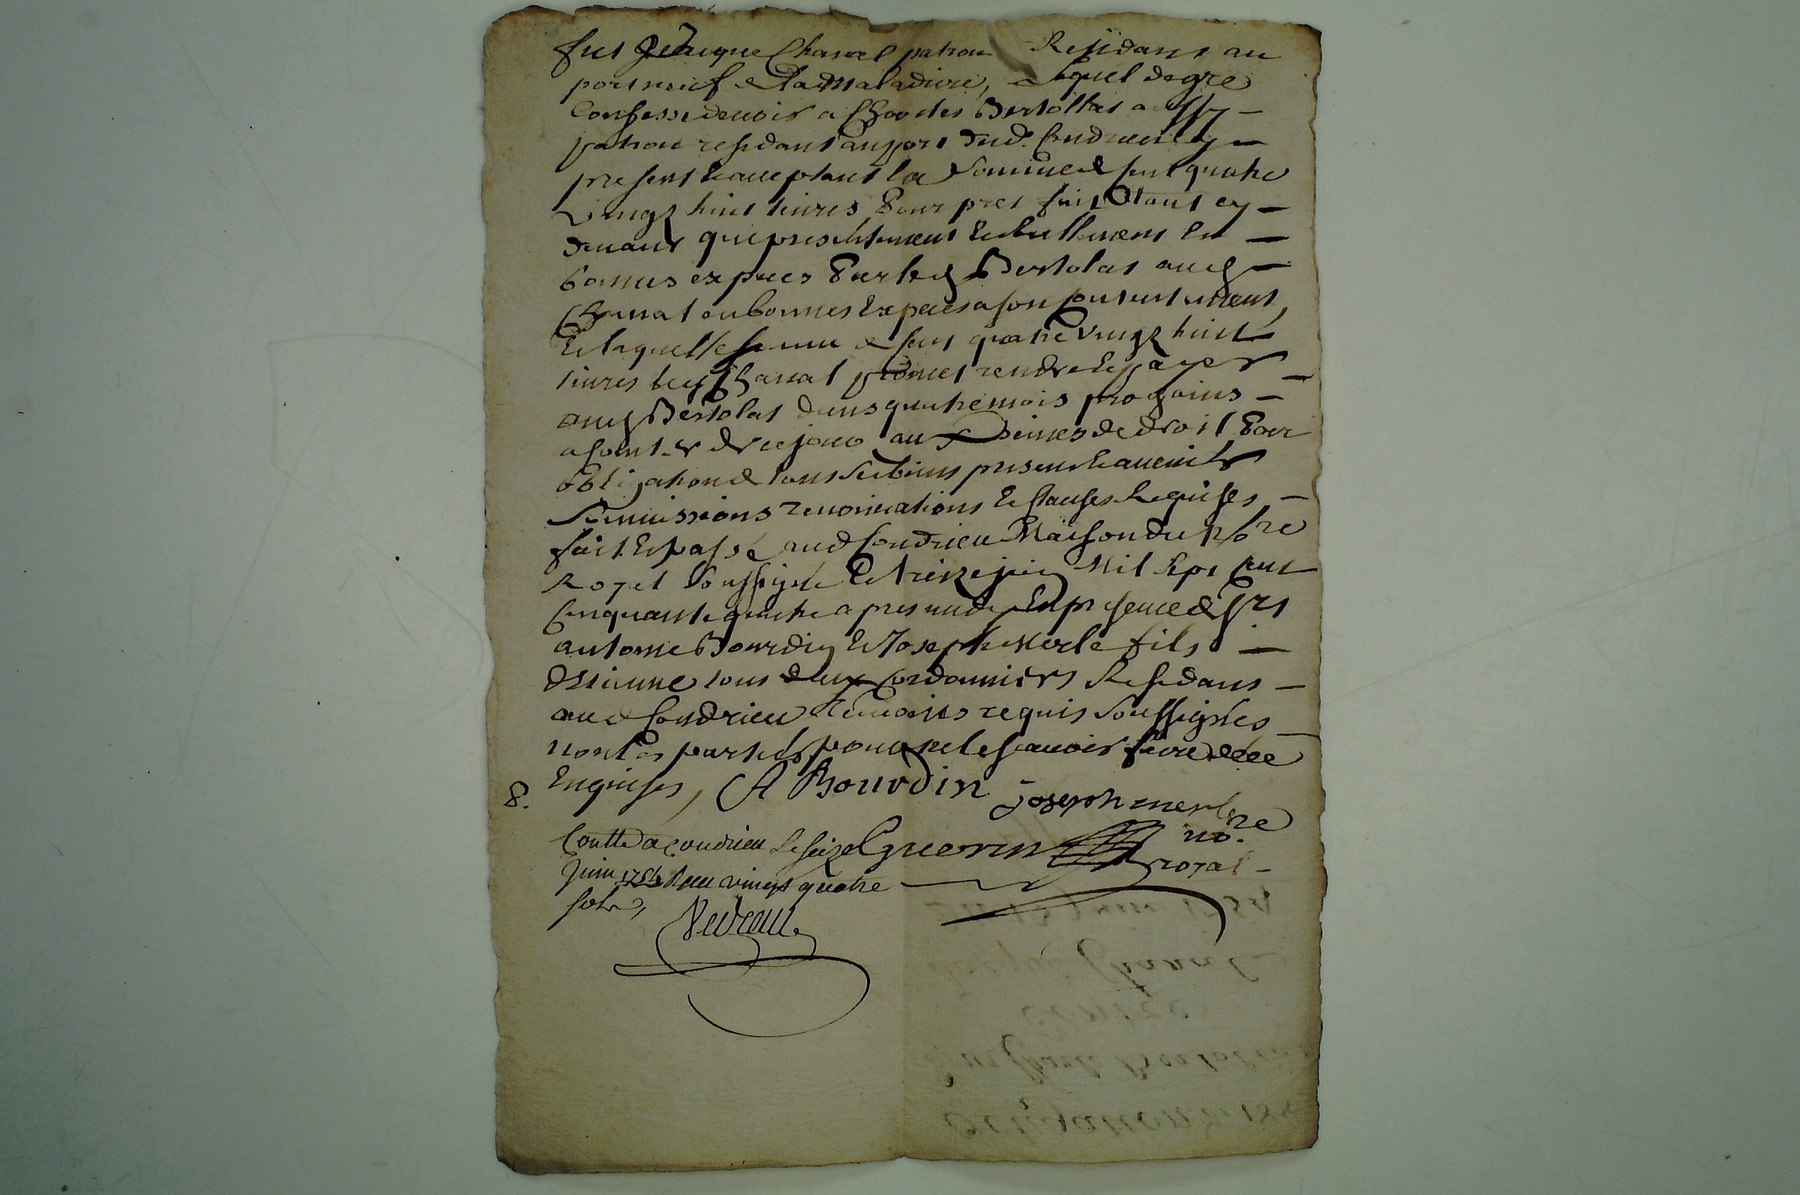 fut Jacque Chanal patron Residant au
port neuf de la Maladiere, lequel de gre
Confesse devoir a Charles Bertollat aussy
patron residant au port dud. Condrieu cy
present & acceptant la Somme de cent quatre
Vingt huit livres Pour pret fait Avant cy
devant que presentement & reellement En
bonnes especes Par led Bertolat aud
Chanal en bonnes Especes a son contentement,
Et laquelle somme de cent quatre vingt huit
livres led Chanal promet rendre & payer
aud Bertolat dans quatre mois prochains
a Compter de ce jour aux peines de droit Pour
obligation de tous ses biens presents & avenir
Soumissions renonciations & clauses Requises
fait & passé aud Condrieu Maison du Nore
Royal Soussigné Le treize juin Mil Sept Cent
Cinquante quatre apres midy En presence de Srs
antoine Bourdin & Joseph Merle fils
d'Etienne tous deux Cordonniers Residans
aud Condrieu temoins requis Soussignés
non les parties pour ne le scavoir faire de ce
Enquises, A Bourdin Joseph merle
Contlé a Condrieu Le seize Guerin nore
Juin 1754 Reçu vingt quatre royal
sols,
13 juin 1754
Chanal
Bertolat
Obligation de 188